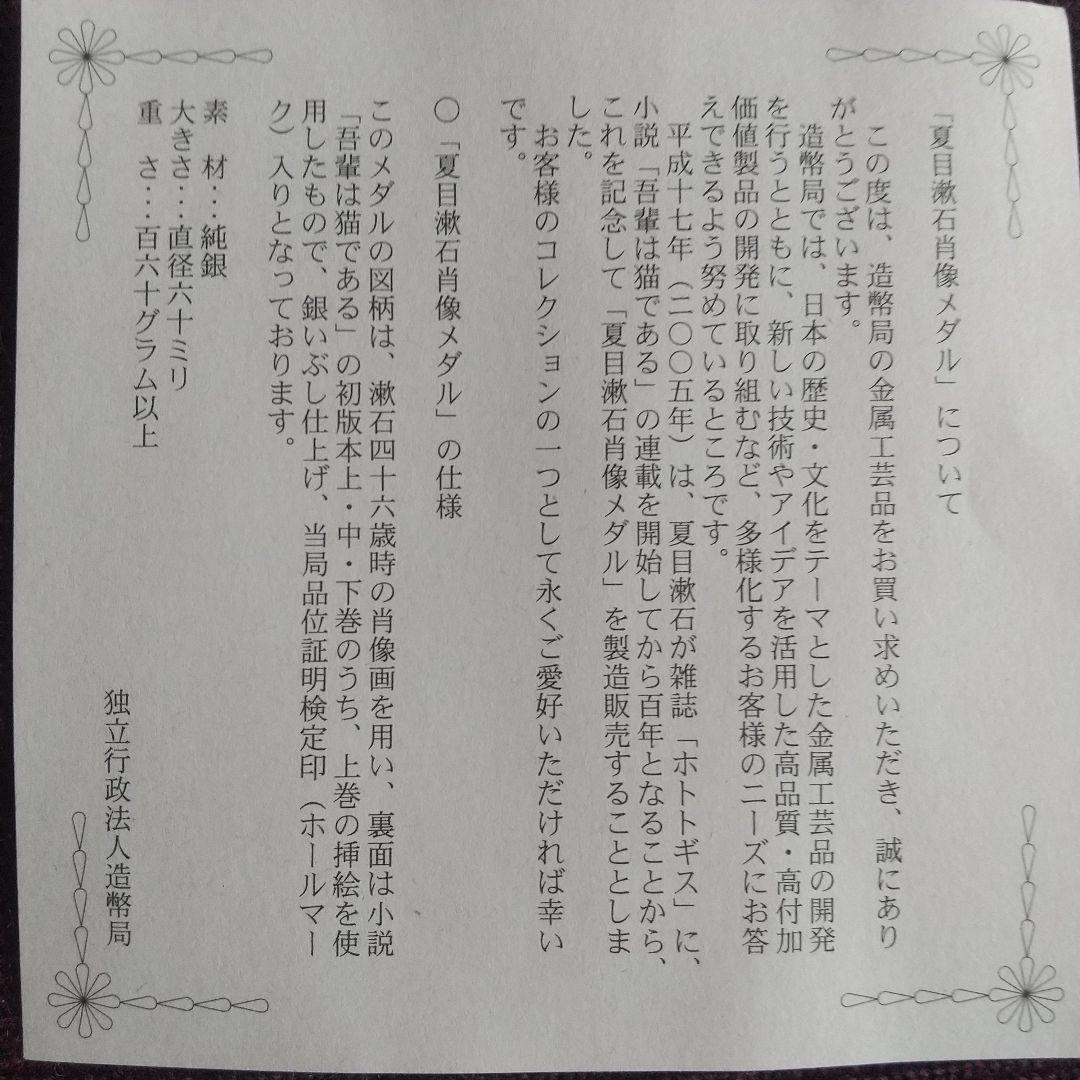 「夏目漱石肖像メダル」について
この度は、造幣局の金属工芸品をお買い求めいただき、誠にあり
がとうございます。
造幣局では、日本の歴史・文化をテーマとした金属工芸品の開発
を行うとともに、新しい技術やアイデアを活用した高品質・高付加
価値製品の開発に取り組むなど、多様化するお客様のニーズにお答
えできるよう努めているところです。
平成十七年（二〇〇五年）は、夏目漱石が雑誌「ホトトギス」に、
小説「吾輩は猫である」の連載を開始してから百年となることから、
これを記念して「夏目漱石肖像メダル」を製造販売することとしま
した。
お客様のコレクションの一つとして永くご愛好いただければ幸い
です。
〇「夏目漱石肖像メダル」の仕様
このメダルの図柄は、漱石四十六歳時の肖像画を用い、裏面は小説
「吾輩は猫である」の初版本上・中・下巻のうち、上巻の挿絵を使
用したもので、銀いぶし仕上げ、当局品位証明検定印（ホールマー
ク）入りとなっております。
素　材・・・純銀
大きさ・・・直径六十ミリ
重　さ・・・百六十グラム以上
独立行政法人造幣局